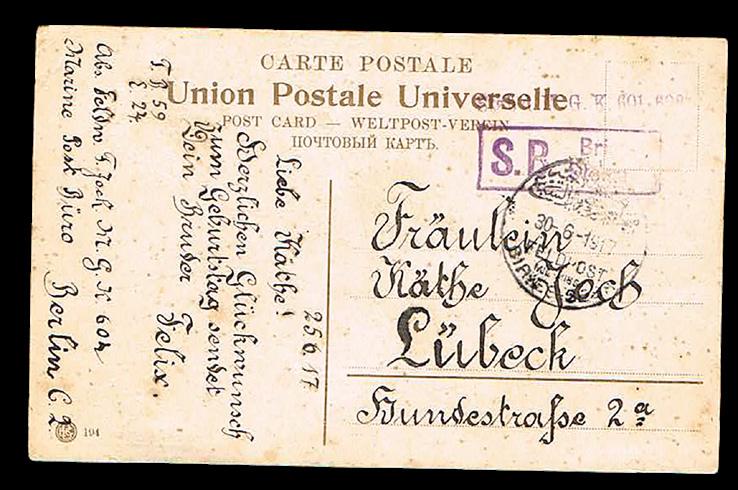 CARTE POSTALE
Union Postale Universelle
POST CARD — WELTPOST-VEREIN
ПОЧТОВЫЙ КАРТЪ.
G. K. 601-
S.B.
Bri
30-6-1917
FELDPOST
BIRKE
Fräulein
Käthe Joch
Lübeck
Hundestraße 2a
25.6.17
Liebe Käthe!
Herzlichen Glückwunsch
zum Geburtstag sendet
Dein Bruder
Felix.
Abs. Feldw. F. Joch M. G. K 604
Marine Post Büro
Berlin C 2
194